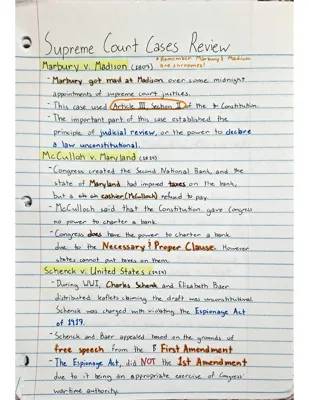 Supreme Court Cases Review
Marbury v. Madison (1803)
* Remember Marbury & Madison
are
- Marbury got mad at Madison over some midnight
appointments of supreme court justices.
- This case used Article III, Section II of the Constitution.
- The important part of this case established the
principle of judicial review, or the power to declare
a law unconstitutional.
McCulloh v. Maryland (1819)
- Congress created the Second National Bank, and the
state of Maryland had imposed taxes on the bank,
but a cashier (McCulloch) refused to pay.
- McCulloch said that the Constitution gave Congress
no power to charter a bank.
- Congress does have the power to charter a bank
due to the Necessary & Proper Clause. However
states cannot put taxes on them.
Schenck v. United States (1919)
- During WWI, Charles Schenk and Elizabeth Baer
distributed leaflets claiming the draft was unconstitutional.
Schenck was charged with violating the Espionage Act
of 1917.
- Schenck and Baer appealed based on the grounds of
free speech from the First Amendment
- The Espionage Act, did NOT the 1st Amendment
due to it being an appropriate exercise of Congress'
wartime authority.